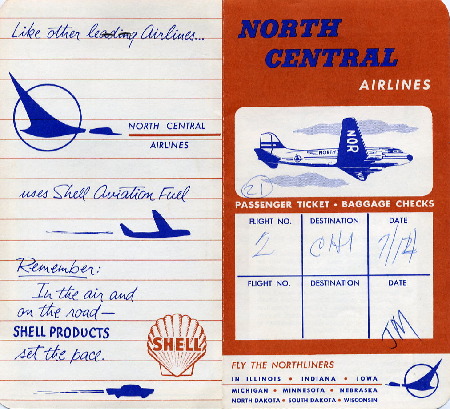 Like other leading Airlines...
NORTH CENTRAL
AIRLINES
uses Shell Aviation Fuel
Remember:
In the air and
on the road—
SHELL PRODUCTS
set the pace.
SHELL
NORTH
CENTRAL
AIRLINES
NOR
NORTH
21
PASSENGER TICKET • BAGGAGE CHECKS
FLIGHT NO. DESTINATION DATE
2 CHI 7/14
FLIGHT NO. DESTINATION DATE
FLY THE NORTHLINERS
IN ILLINOIS • INDIANA • IOWA
MICHIGAN • MINNESOTA • NEBRASKA
NORTH DAKOTA • SOUTH DAKOTA • WISCONSIN